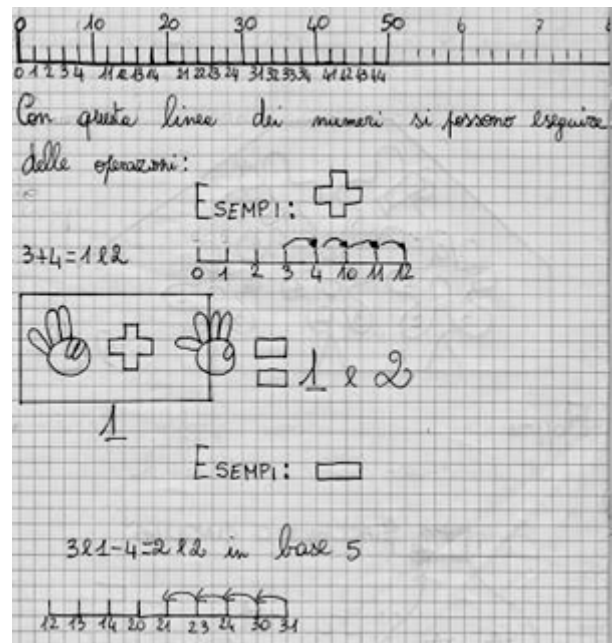 0 10 20 30 40 50 6 7 8
0 1 2 3 4 11 12 13 14 21 22 23 24 31 32 33 34 41 42 43 44
Con questa linea dei numeri si possono eseguire
delle operazioni:
ESEMPI: +
3+4=1 e 2
0 1 2 3 4 10 11 12
+ = 1 e 2
1
ESEMPI: -
3e1-4=2e2 in base 5
12 13 14 20 21 23 24 30 31